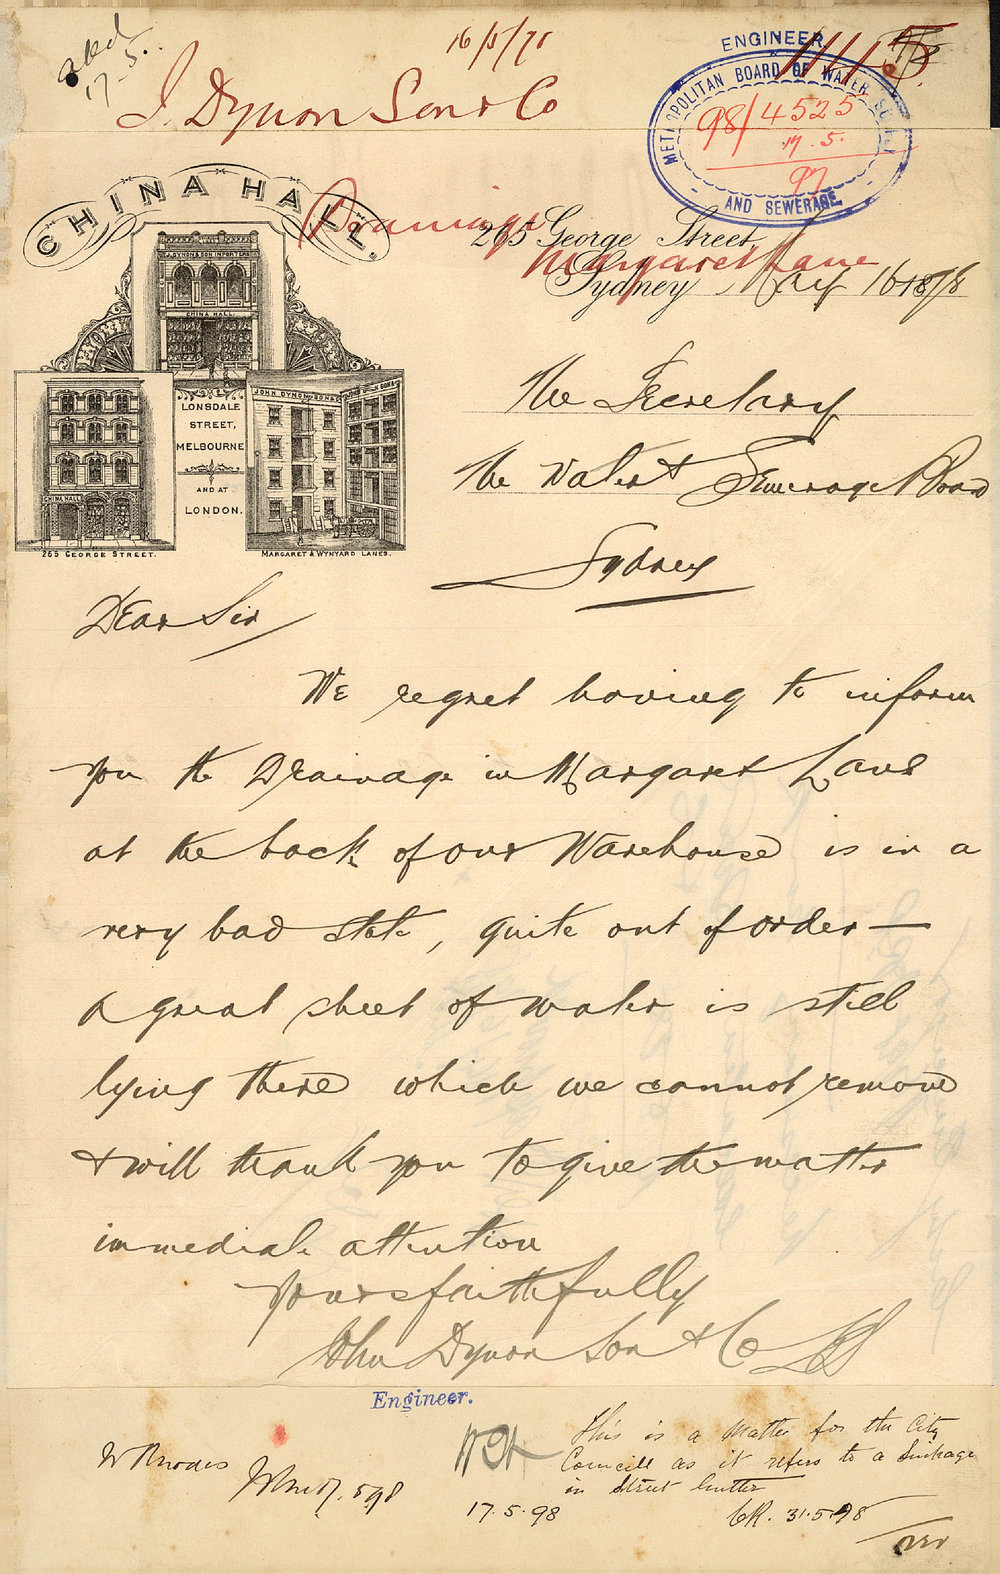 16/5/98
J. Dynon Son & Co
17-5.
ENGINEER
METROPOLITAN BOARD OF WATER SUPPLY
98/4525
17.5.
97
AND SEWERAGE.
CHINA HALL.
J. DYNON & SON IMPORTERS
CHINA HALL.
LONSDALE
STREET,
MELBOURNE
AND AT
LONDON.
CHINA HALL
265 GEORGE STREET.
JOHN DYNON SON & Co
MARGARET & WYNYARD LANES.
Drainage
265 George Street,
Margaret Lane
Sydney, May 16 1898
The Secretary
The Water & Sewerage Board
Sydney
Dear Sir
We regret having to inform
you the Drainage in Margaret Lane
at the back of our Warehouse is in a
very bad state, quite out of order—
A great sheet of water is still
lying there which we cannot remove
& will thank you to give the matter
immediate attention
Yours faithfully
John Dynon Son & Co
Engineer.
This is a matter for the City
Council as it refers to a sinkage
in Street Gutter
31.5.98
17.5.98